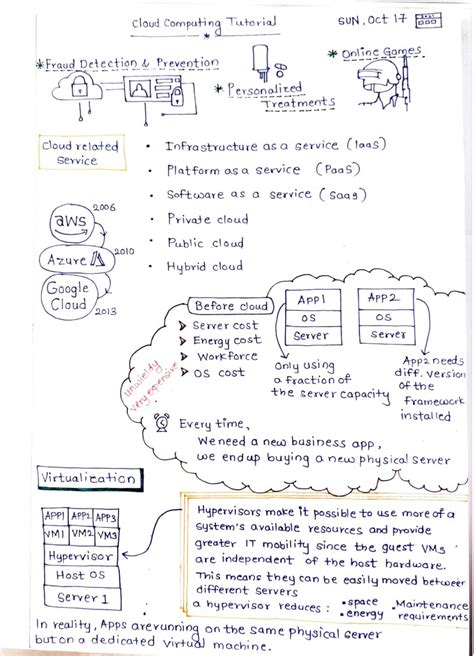 Cloud Computing Tutorial
SUN, Oct 17
* Fraud Detection & Prevention
* Personalized
Treatments
* Online Games
Cloud related
Service
• Infrastructure as a service (IaaS)
• Platform as a service (PaaS)
• Software as a service (SaaS)
• Private cloud
• Public cloud
• Hybrid cloud
aws
2006
Azure
2010
Google
Cloud
2013
Before cloud
Server cost
Energy cost
Workforce
OS cost
Unwieldy
very expensive
APP1
OS
Server
APP2
OS
Server
Only using
a fraction of
the server capacity
App2 needs
diff. version
of the
framework
installed
Every time,
We need a new business app,
we end up buying a new physical server
Virtualization
APP1 APP2 APP3
VM1 VM2 VM3
Hypervisor
Host OS
Server 1
Hypervisors make it possible to use more of a
system's available resources and provide
greater IT mobility since the guest VMs
are independent of the host hardware.
This means they can be easily moved between
different servers
a hypervisor reduces : • space • Maintenance
• energy requirements
In reality, Apps are running on the same physical server
but on a dedicated virtual machine.